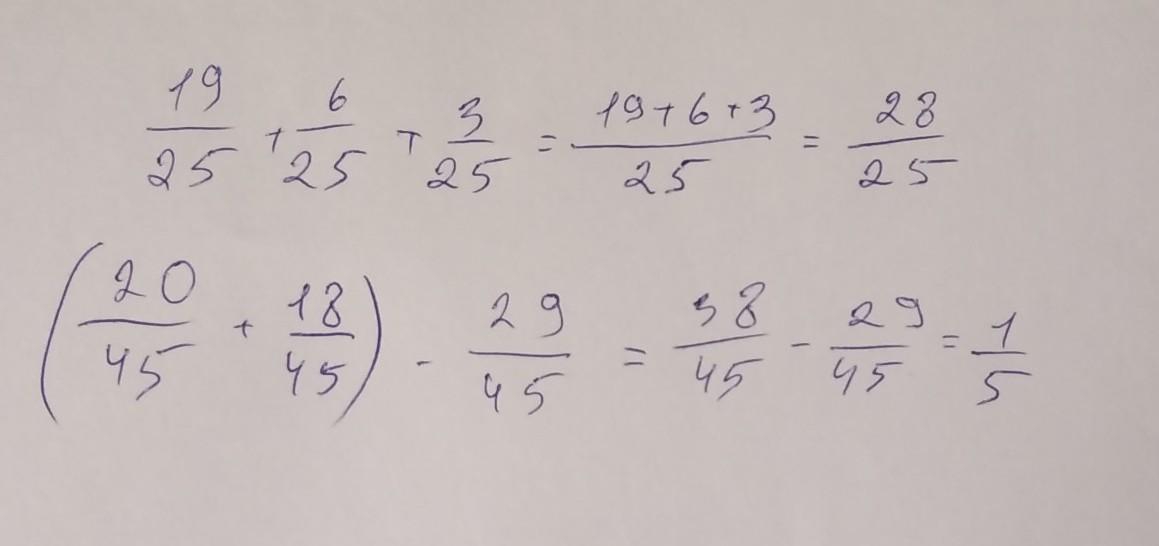 19/25 + 6/25 + 3/25 = 19+6+3/25 = 28/25
(20/45 + 18/45) - 29/45 = 38/45 - 29/45 = 1/5